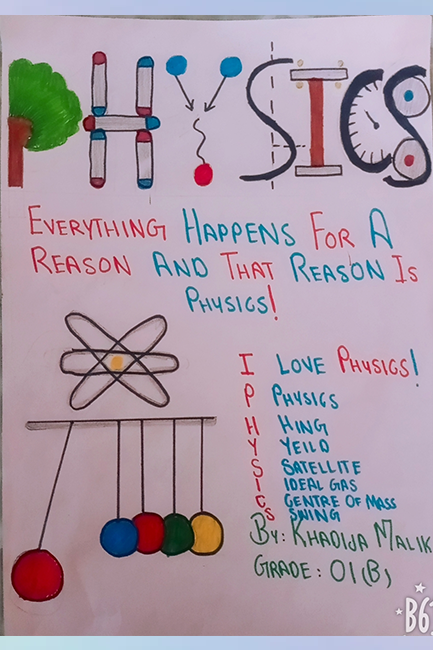 PHYSICS
EVERYTHING HAPPENS FOR A
REASON AND THAT REASON IS
PHYSICS!
I LOVE PHYSICS!
P PHYSICS
H HING
Y YEILD
S SATELLITE
I IDEAL GAS
C CENTRE OF MASS
S SWING
BY: KHADIJA MALIK
GRADE: 01(B)
B6